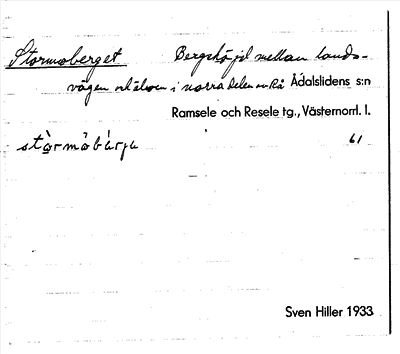 Stormoberget Bergshöjd mellan lands-
vägen och älven i norra delen av Rå Ådalslidens s:n
Ramsele och Resele tg., Västernorrl. l.
61
Sven Hiller 1933